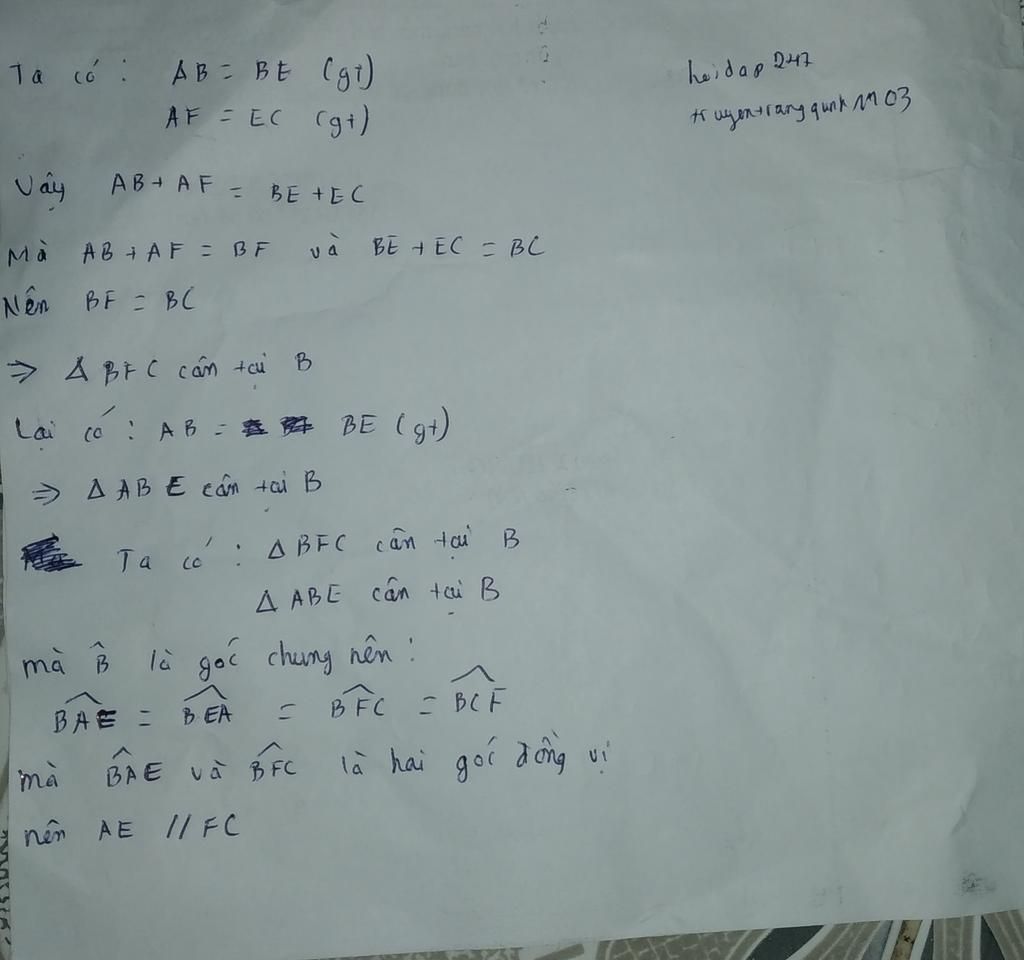 Ta có : AB = BE (gt)
hoidap 247
AF = EC (gt)
truyentrangquynhm03
Vậy AB + AF = BE + EC
Mà AB + AF = BF và BE + EC = BC
Nên BF = BC
⇒ Δ BFC cân tại B
Lại có : AB = BE (gt)
⇒ Δ ABE cân tại B
Ta có : Δ BFC cân tại B
Δ ABE cân tại B
mà B̂ là góc chung nên :
B̂AE = B̂EA = B̂FC = B̂CF
mà B̂AE và B̂FC là hai góc đồng vị
nên AE // FC